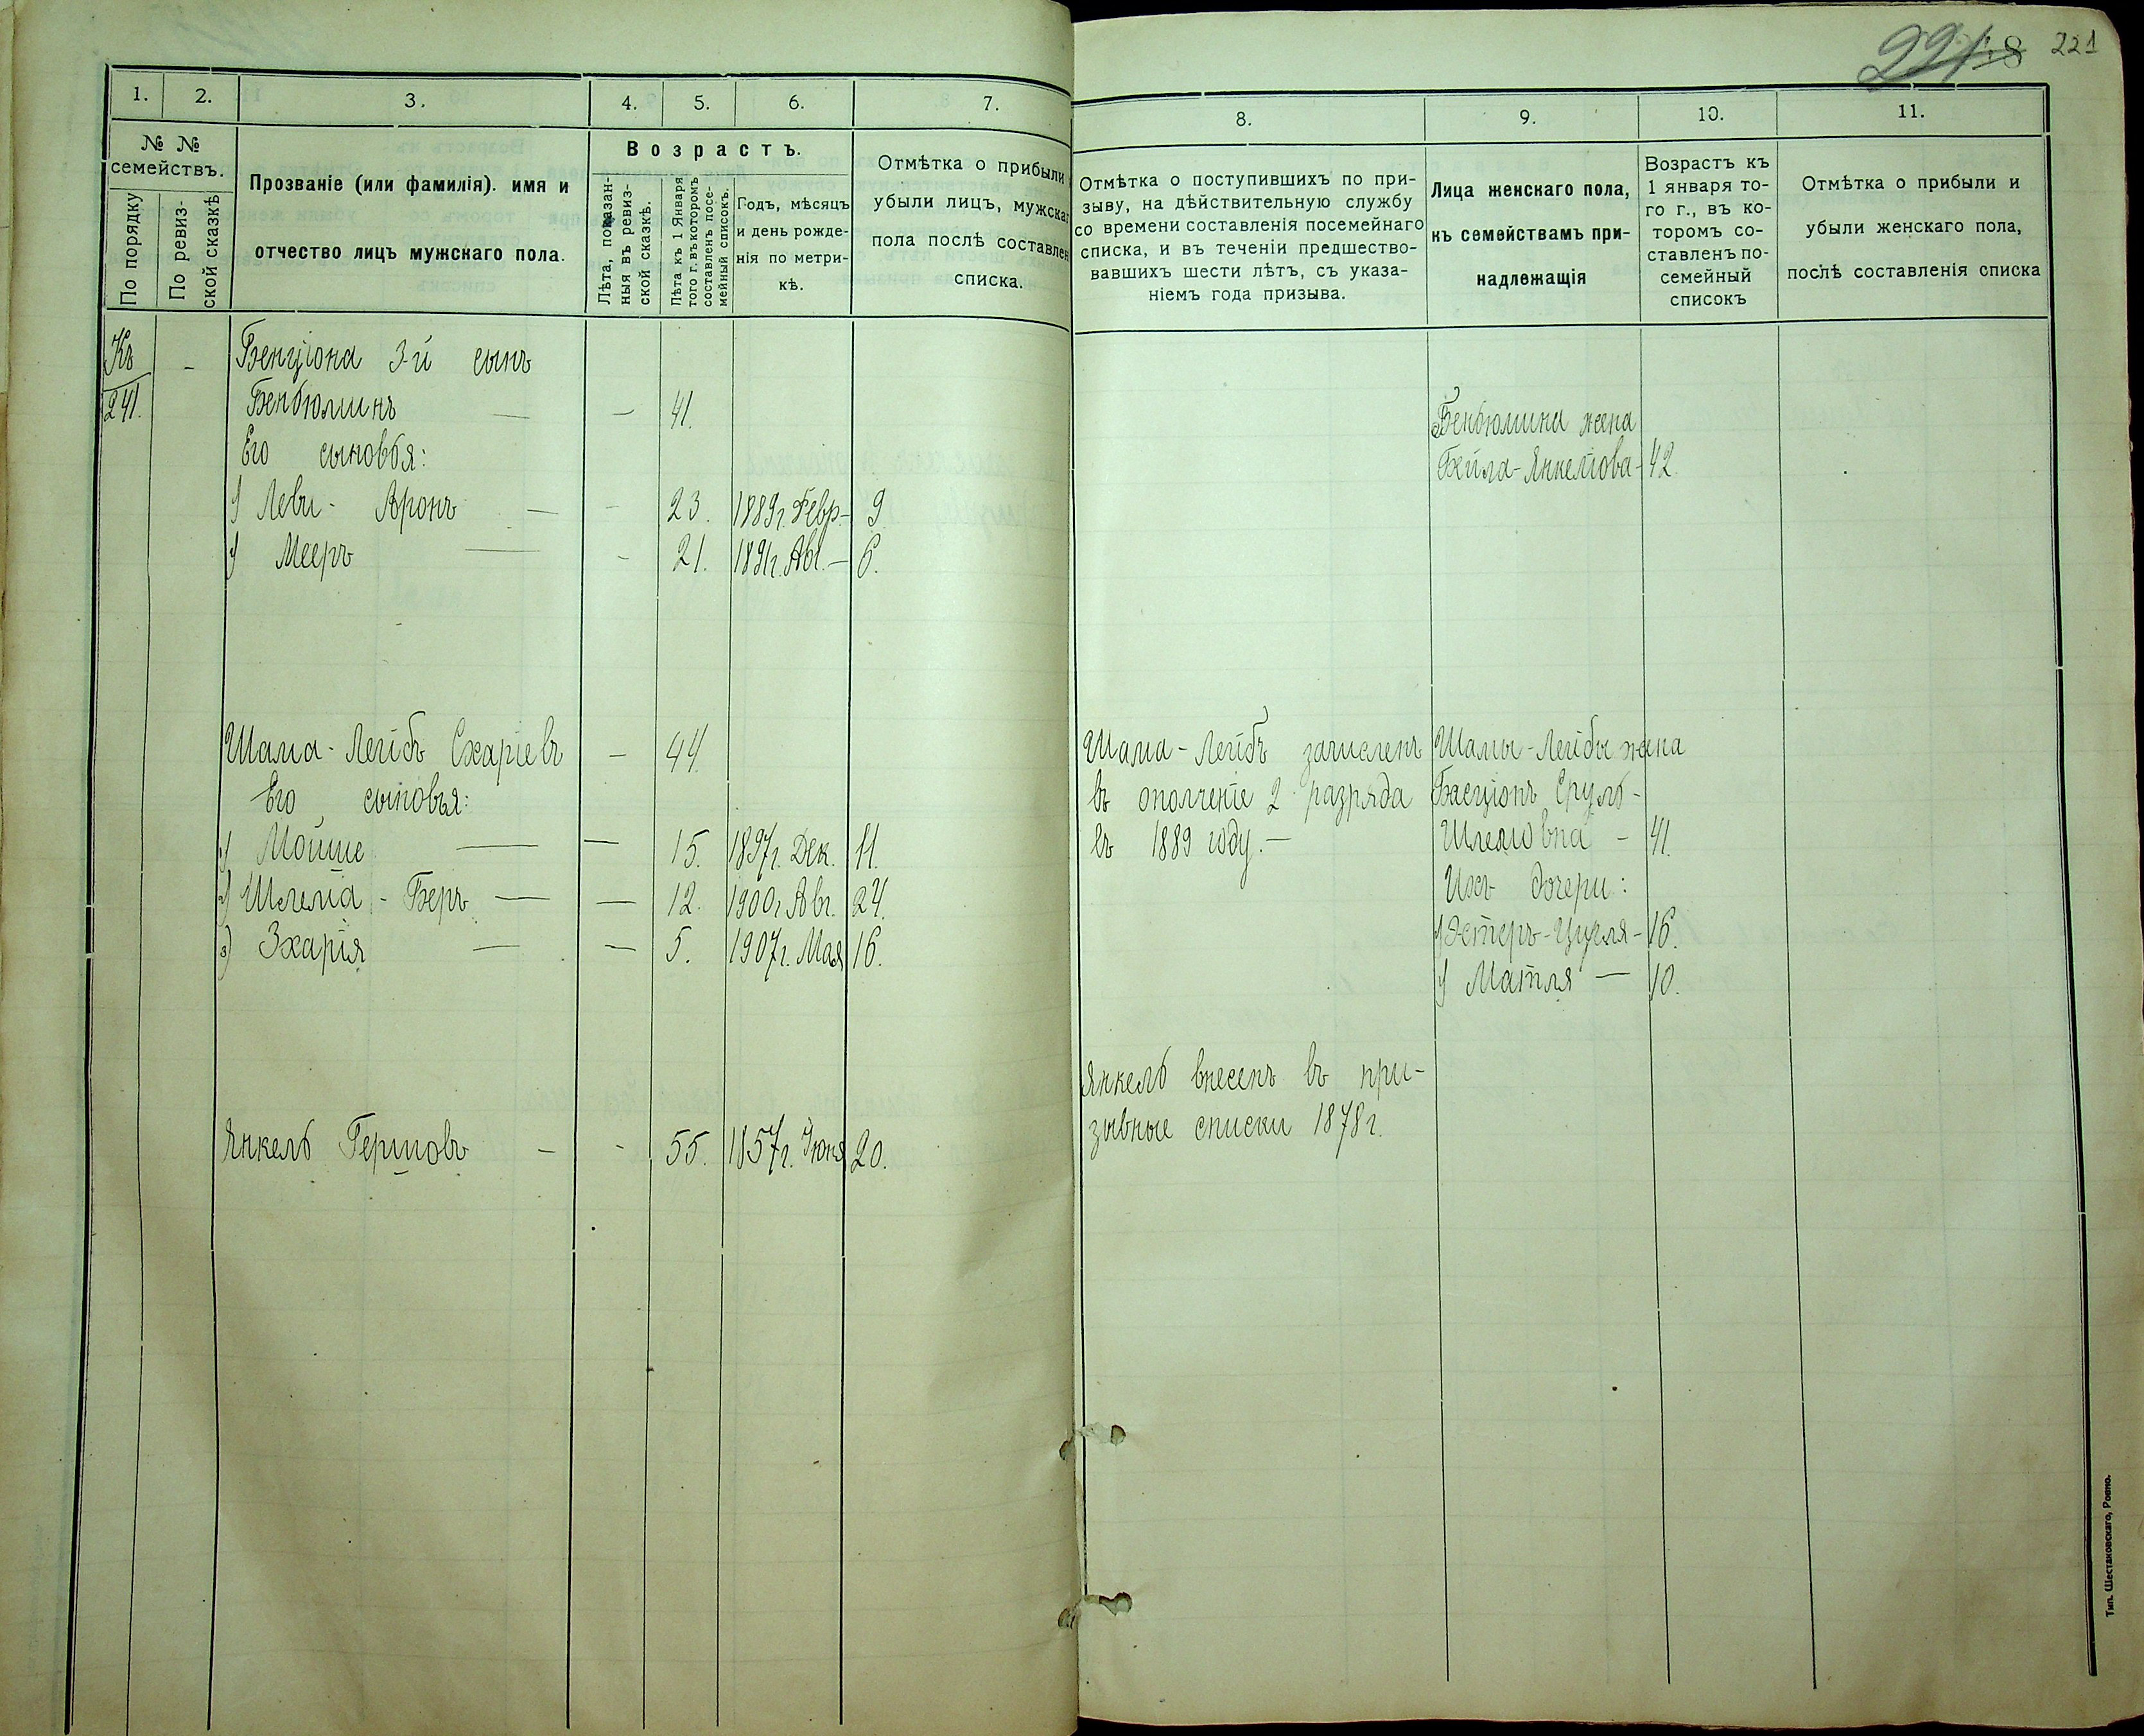 221
1.
2.
3.
4.
5.
6.
7.
№ №
семействъ.
По порядку
По ревиз-
ской сказкѣ
Прозваніе (или фамилія). имя и
отчество лицъ мужскаго пола.
Возрастъ.
Лѣта, показан-
ныя въ ревиз-
ской сказкѣ.
Лѣта къ 1 Января
того г. въ которомъ
составленъ посе-
мейный списокъ.
Годъ, мѣсяцъ
и день рожде-
нія по метри-
кѣ.
Отмѣтка о прибыли
убыли лицъ, мужска
пола послѣ составлен
списка.
Къ - Бенціона 3-й сынъ
241. Бенбюминъ — — 41.
Его сыновья:
1) Леви - Аронъ — - 23. 1889г. Февр- 9.
2) Мееръ — - 21. 1891г. Авг. - 6.
Шама - Лейбъ Схаріевъ — 44.
Его сыновья:
1) Мойше — — 15. 1897г. Дек. 11.
2) Шлема - Беръ — — 12. 1900г. Авг. 24.
3) Зхарія — — 5. 1907г. Мая 16.
Янкель Гершовъ — - 55. 1857г. Іюня 20.
8.
9.
10.
11.
Отмѣтка о поступившихъ по при-
зыву, на дѣйствительную службу
со времени составленія посемейнаго
списка, и въ теченіи предшество-
вавшихъ шести лѣтъ, съ указа-
ніемъ года призыва.
Лица женскаго пола,
къ семействамъ при-
надлежащія
Возрастъ къ
1 января то-
го г., въ ко-
торомъ со-
ставленъ по-
семейный
списокъ
Отмѣтка о прибыли и
убыли женскаго пола,
послѣ составленія списка
Бенбюмина жена
Бейла - Янкелiова - 42.
Шама - Лейбъ зачисленъ
въ ополченіе 2 разряда
въ 1889 году. —
Шамы - Лейбы жена
Басціонъ Сруль-
Шлемовна - 41.
Ихъ дочери:
1) Эстеръ - Цирля - 16.
2) Матля — 10.
Янкель внесенъ въ при-
зывные списки 1878г.
Тип. Шестаковскаго, Ровно.